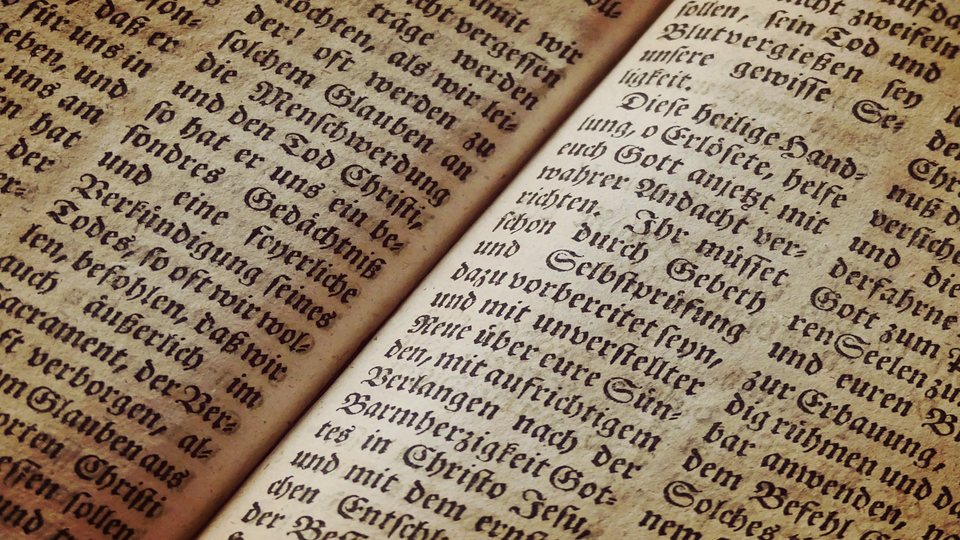 daß er
für uns in
eben, und
uns am
hat
der
er-
damit wir
nicht vergessen
träge werden
möchten, als wir lei-
der! oft werden zu
solchem Glauben an
die Menschwerdung
und den Tod Christi,
so hat er uns ein be-
sondres Gedächtniß
und eine feyerliche
Verkündigung seines
Todes, so oft wir wol-
len, befohlen, daß wir
auch äußerlich im
acrament, der Ver-
verborgen, al-
m Glauben aus
orten Christi
essen sollen
und
nicht zweifeln
sollen, sein Tod und
Blutvergießen sey
unsere gewisse Se-
ligkeit.
Diese heilige Hand-
lung, o Erlösete, helfe
euch Gott anjetzt mit
wahrer Andacht ver-
richten. Ihr müsset
schon durch Gebeth
und Selbstprüfung
dazu vorbereitet seyn,
und mit unverstellter
Reue über eure Sün-
den, mit aufrichtigem
Verlangen nach der
Barmherzigkeit Got-
tes in Christo Jesu,
und mit dem ern
chen Entschl
der Be
auf da
de
Chri
nuß d
versich
und die
derfahrne
Gott zum
ren Seelen zu
und euren B
zur Erbauung,
dig rühmen und d
bar anwenden,
dem Befehl
Solches
nem